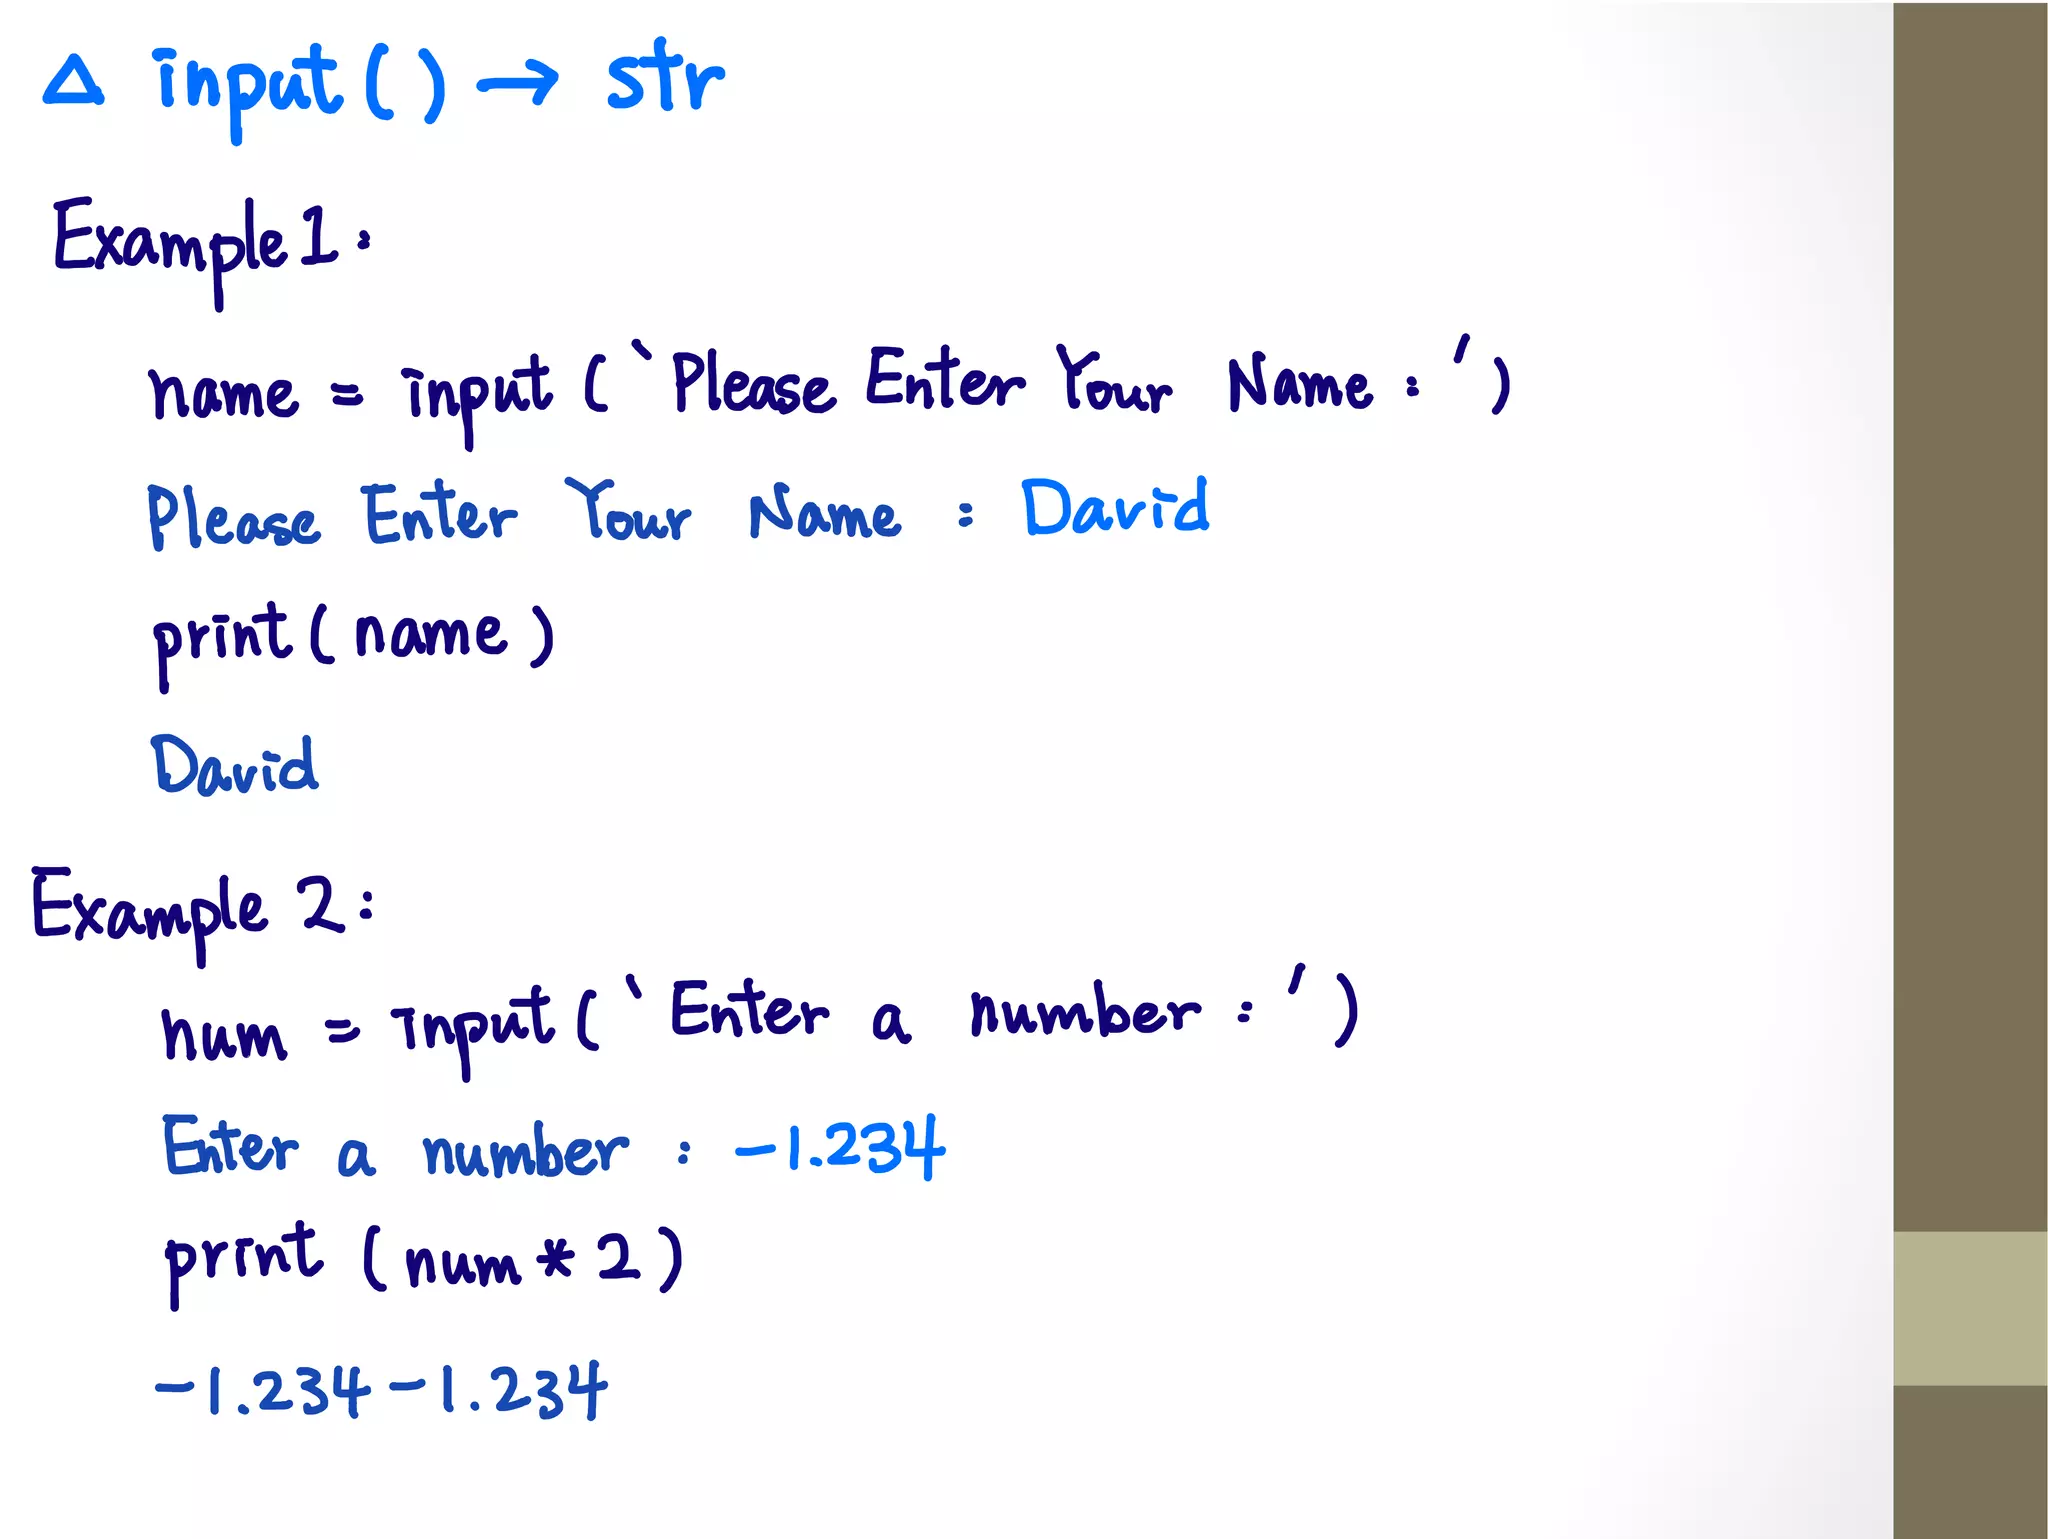 △ input() → str
Example 1:
name = input (‵Please Enter Your Name : ′)
Please Enter Your Name : David
print( name )
David
Example 2:
num = input( ‵Enter a number : ′ )
Enter a number : -1.234
print ( num * 2 )
-1.234-1.234